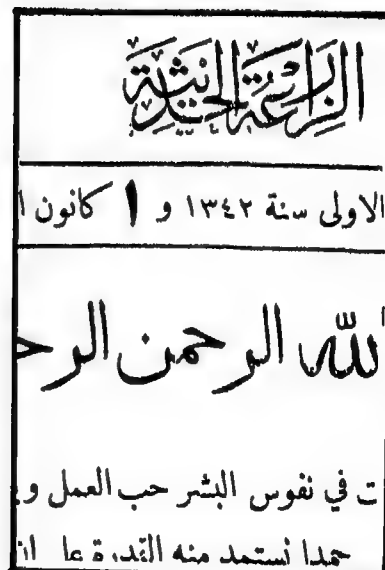 الزراعة الحديثة
الاولى سنة ١٣٤٢ و ١ كانون
الله الرحمن
في نفوس البشر حب العمل
حمدا نستمد منه القدرة